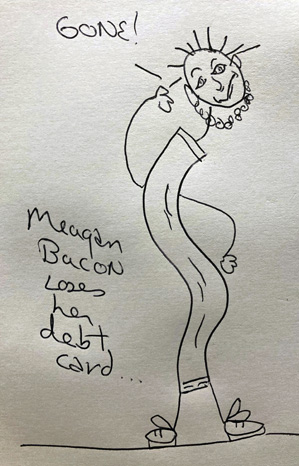 GONE!
Meagan
Bacon
Loses
her
debt
card...